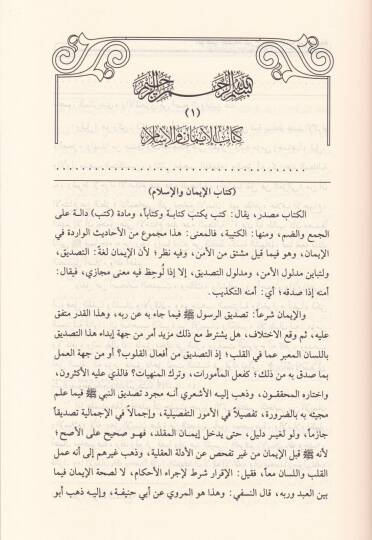 بسم الله الرحمن الرحيم
(١)
كتاب الإيمان والإسلام
(كتاب الإيمان والإسلام)
الكتاب مصدر، يقال: كتب يكتب كتابة وكتاباً، ومادة (كتب) دالة على
الجمع والضم، ومنها: الكتيبة، فالمعنى: هذا مجموع من الأحاديث الواردة في
الإيمان، وهو فيما قيل مشتق من الأمن، وفيه نظر؛ لأن الإيمان لغةً: التصديق،
ولتباين مدلول الأمن، ومدلول التصديق، إلا إذا لُوحِظ فيه معنى مجازي، فيقال:
أمنه إذا صدقه؛ أي: أمنه التكذيب.
والإيمان شرعاً: تصديق الرسول ﷺ فيما جاء به عن ربه، وهذا القدر متفق
عليه، ثم وقع الاختلاف، هل يشترط مع ذلك مزيد أمر من جهة إبداء هذا التصديق
باللسان المعبر عما في القلب؛ إذ التصديق من أفعال القلوب؟ أو من جهة العمل
بما صدق به من ذلك؛ كفعل المأمورات، وترك المنهيات؟ فالذي عليه الأكثرون،
واختاره المحققون، وذهب إليه الأشعري أنه مجرد تصديق النبي ﷺ فيما علم
مجيئه به بالضرورة، تفصيلاً في الأمور التفصيلية، وإجمالاً في الإجمالية تصديقاً
جازماً، ولو لغير دليل، حتى يدخل إيمان المقلد، فهو صحيح على الأصح؛
لأنه ﷺ قبل الإيمان من غير تفحص عن الأدلة العقلية، وذهب غيرهم إلى أنه عمل
القلب واللسان معاً، فقيل: الإقرار شرط لإجراء الأحكام، لا لصحة الإيمان فيما
بين العبد وربه، قال النسفي: وهذا هو المروي عن أبي حنيفة، وإليه ذهب أبو